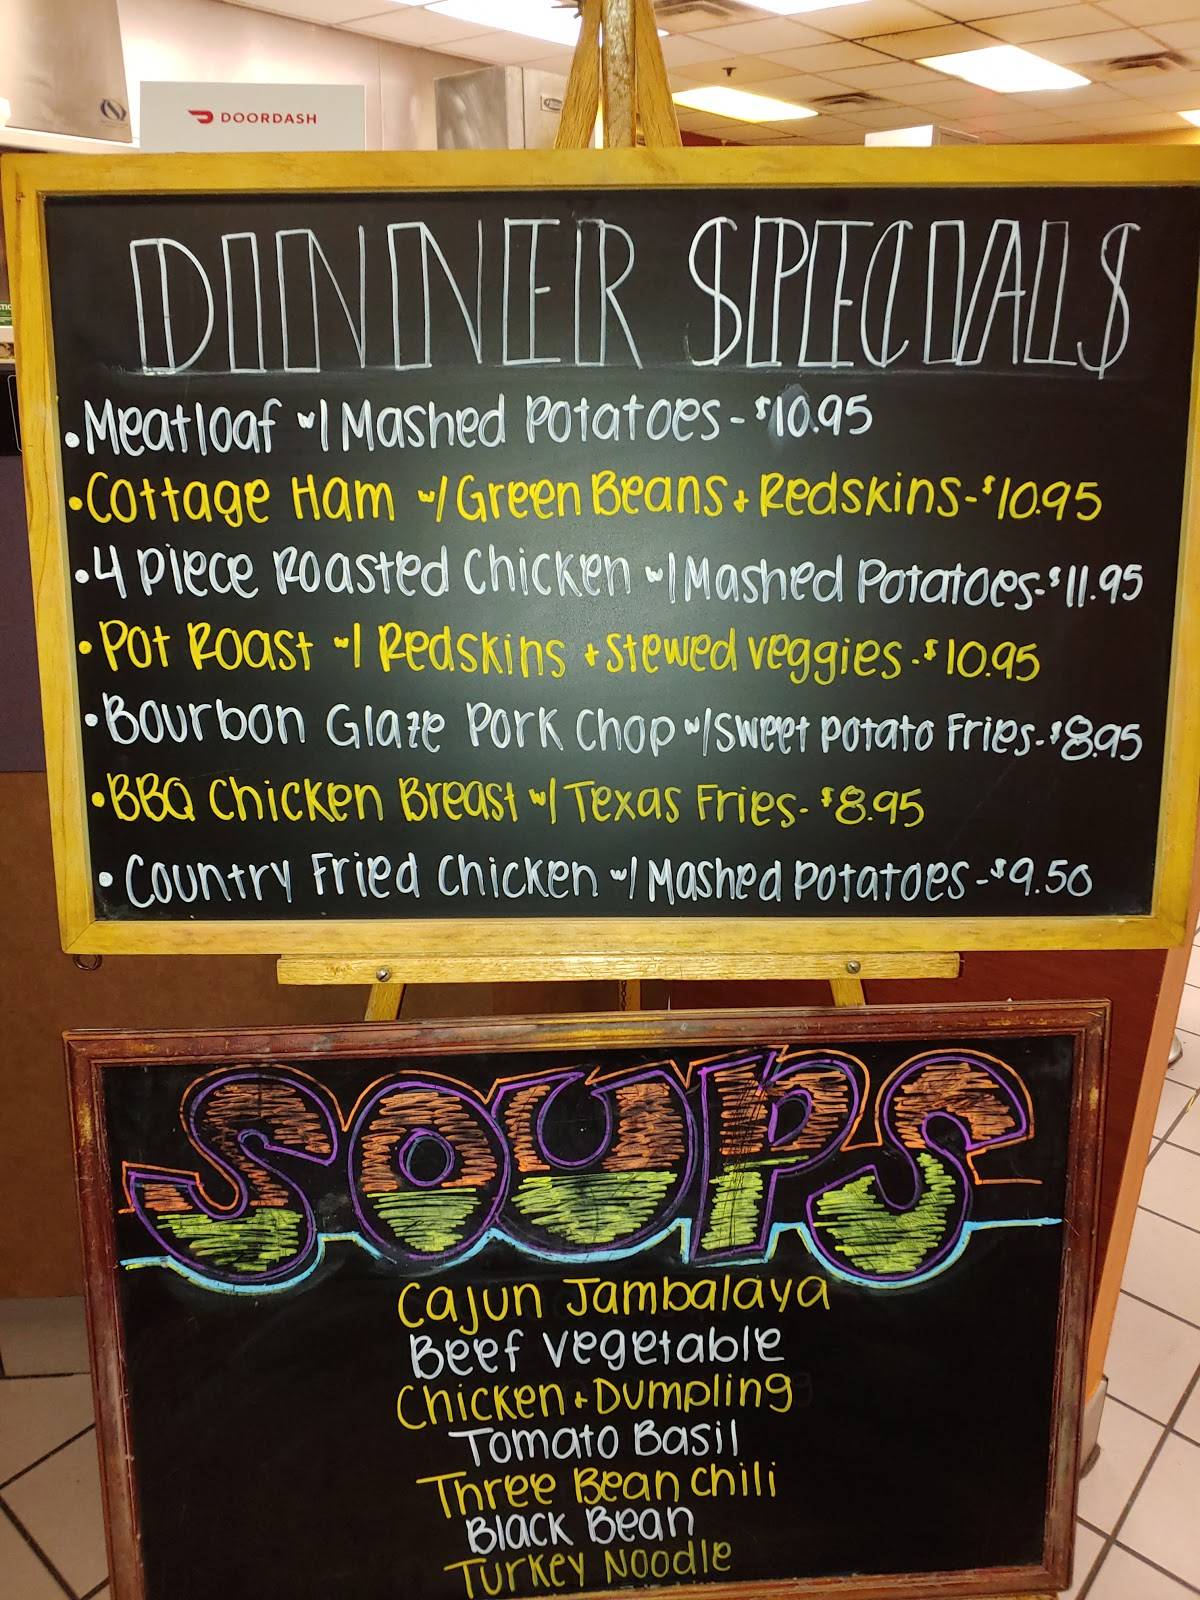 DOORDASH
DINNER SPECIALS
• Meatloaf w/ Mashed Potatoes - $10.95
• Cottage Ham w/ Green Beans + Redskins - $10.95
• 4 piece Roasted Chicken w/ Mashed Potatoes - $11.95
• Pot Roast w/ Redskins + Stewed veggies - $10.95
• Bourbon Glaze Pork Chop w/ Sweet Potato Fries - $8.95
• BBQ Chicken Breast w/ Texas Fries - $8.95
• Country Fried Chicken w/ Mashed Potatoes - $9.50
SOUPS
Cajun Jambalaya
Beef Vegetable
Chicken + Dumpling
Tomato Basil
Three Bean Chili
Black Bean
Turkey Noodle